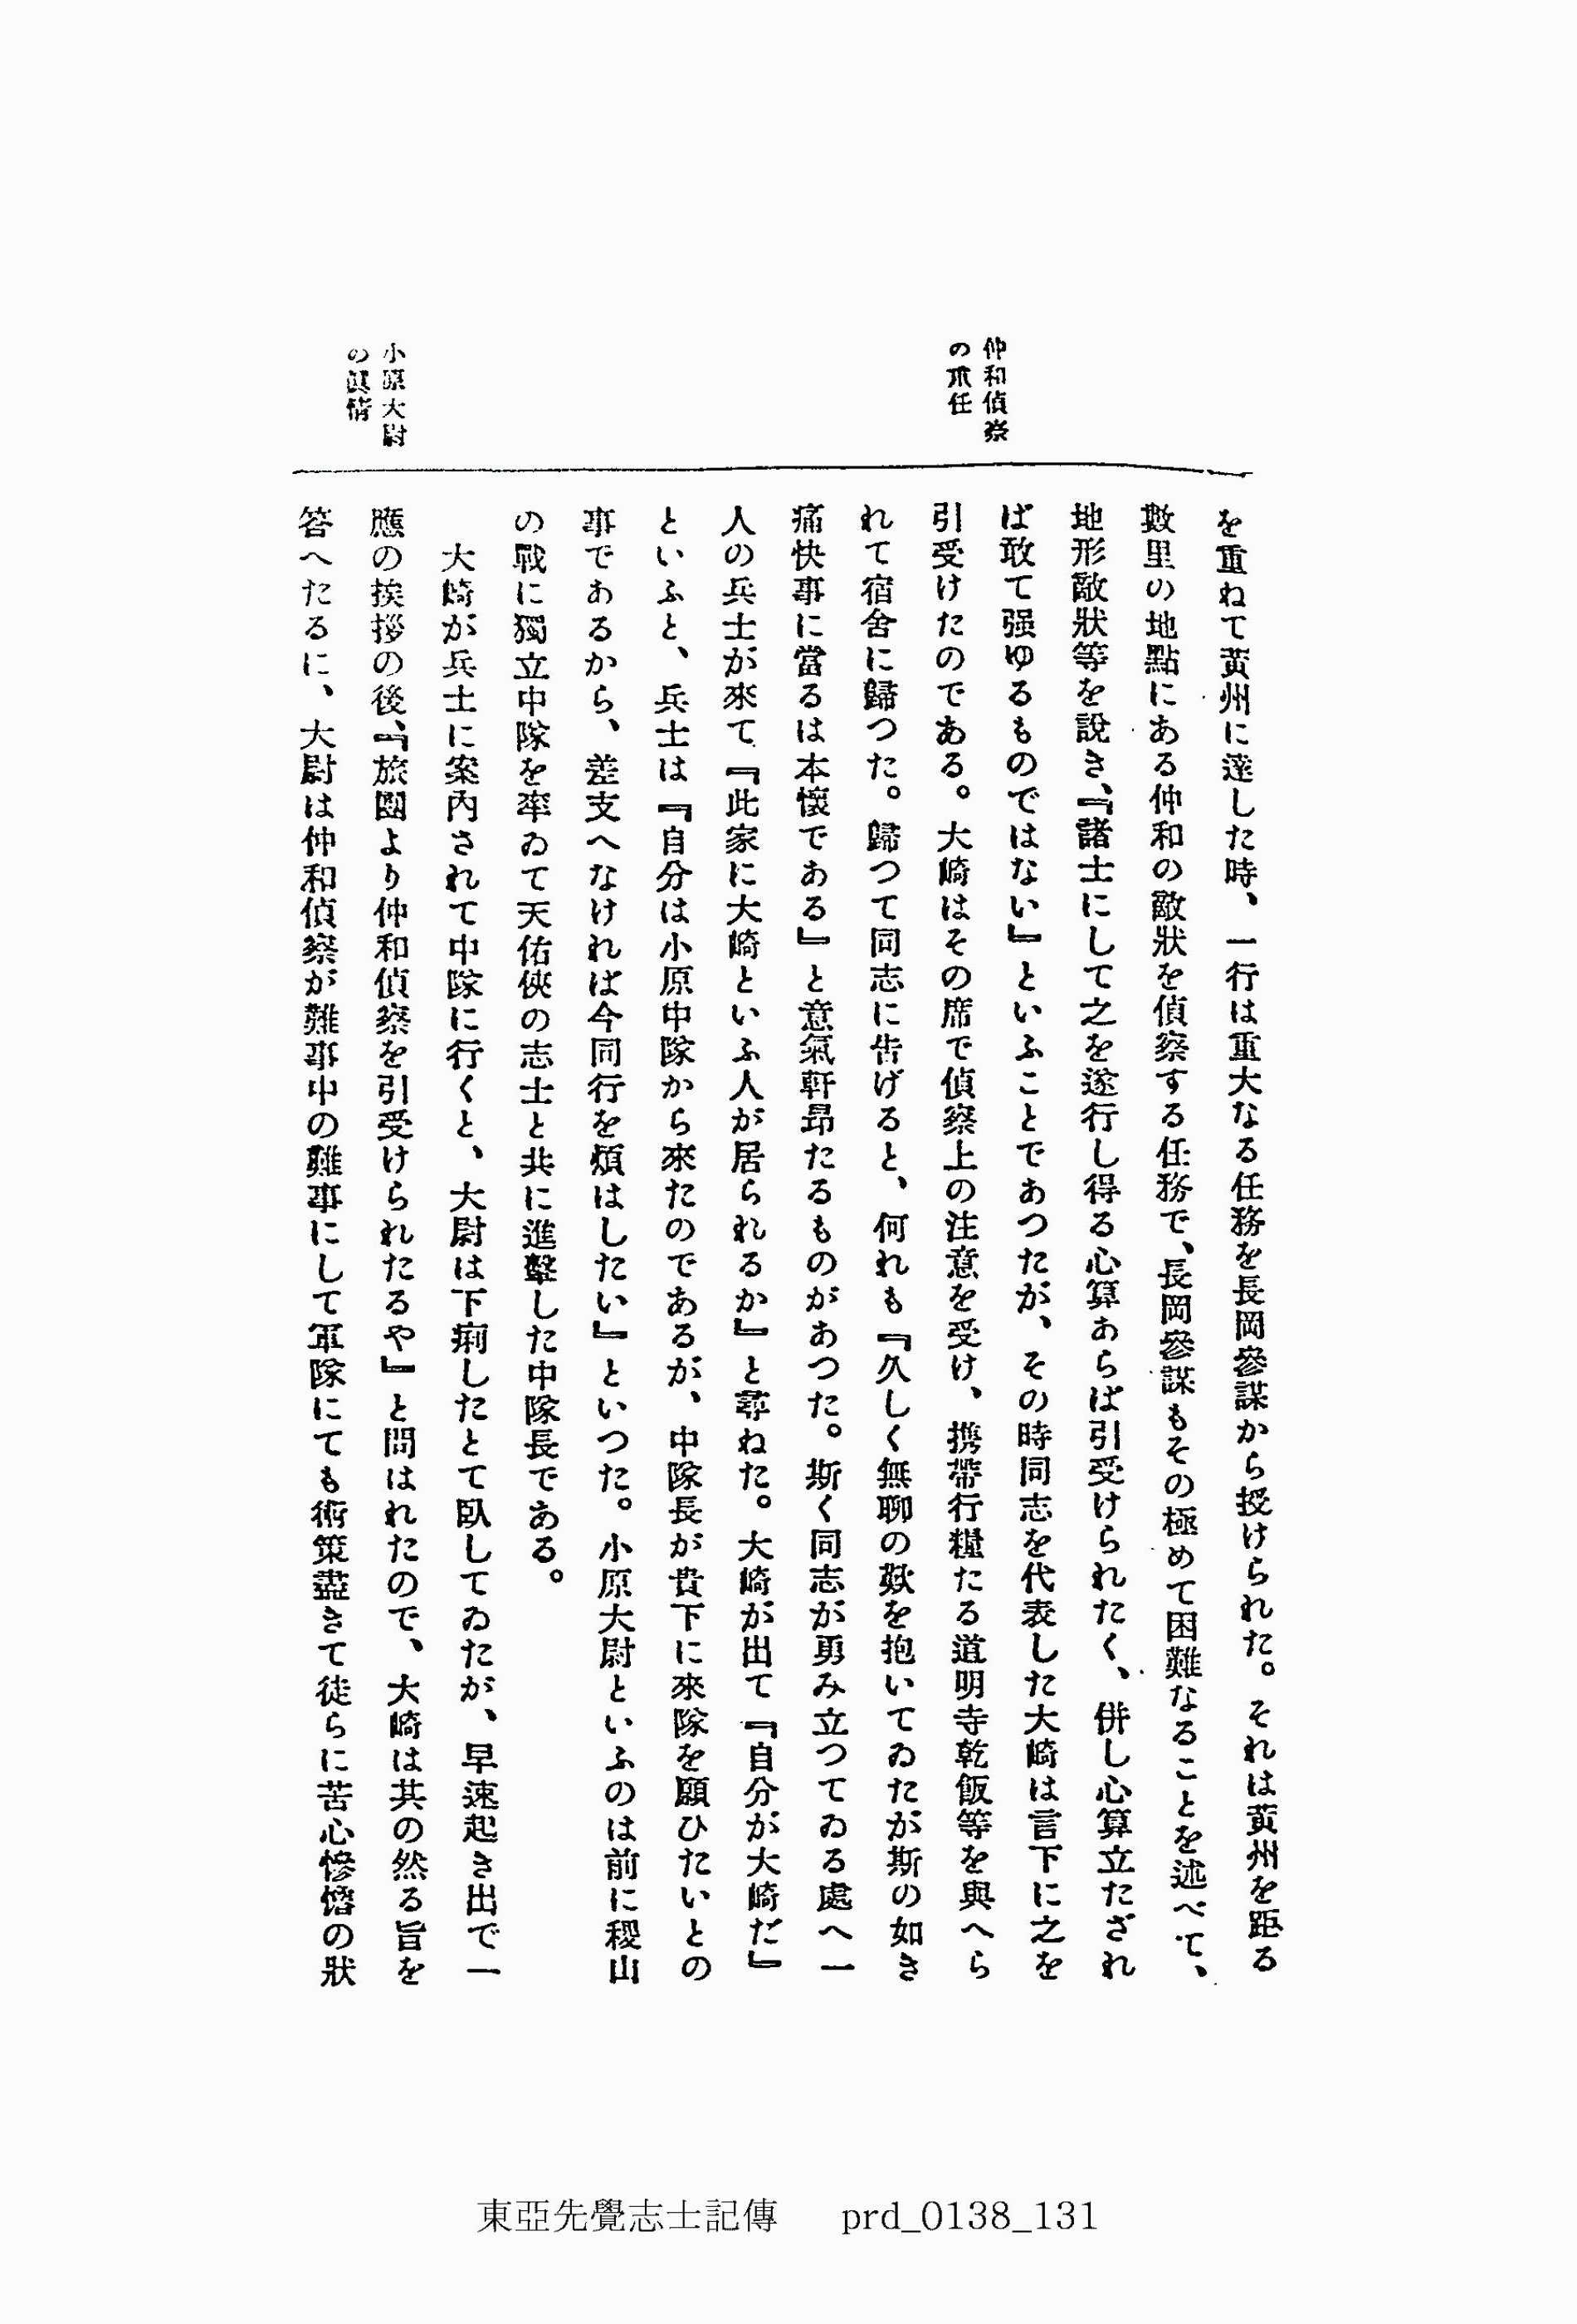 仲和偵察
の重任
小原大尉
の眞情
を重ねて黄州に達した時、一行は重大なる任務を長岡參謀から授けられた。それは黄州を距る
數里の地點にある仲和の敵狀を偵察する任務で、長岡參謀もその極めて困難なることを述べて、
地形敵狀等を說き、『諸士にして之を遂行し得る心算あらば引受けられたく、併し心算立たざれ
ば敢て强ゆるものではない』といふことであつたが、その時同志を代表した大崎は言下に之を
引受けたのである。大崎はその席で偵察上の注意を受け、携帶行糧たる道明寺乾飯等を與へら
れて宿舍に歸つた。歸つて同志に告げると、何れも『久しく無聊の歎を抱いてゐたが斯の如き
痛快事に當るは本懷である』と意氣軒昂たるものがあつた。斯く同志が勇み立つてゐる處へ一
人の兵士が來て『此家に大崎といふ人が居られるか』と尋ねた。大崎が出て『自分が大崎だ』
といふと、兵士は『自分は小原中隊から來たのであるが、中隊長が貴下に來隊を願ひたいとの
事であるから、差支へなければ今同行を煩はしたい』といつた。小原大尉といふのは前に稷山
の戰に獨立中隊を率ゐて天佑俠の志士と共に進擊した中隊長である。
大崎が兵士に案內されて中隊に行くと、大尉は下痢したとて臥してゐたが、早速起き出で一
應の挨拶の後、『旅團より仲和偵察を引受けられたるや』と問はれたので、大崎は其の然る旨を
答へたるに、大尉は仲和偵察が難事中の難事にして軍隊にても術策盡きて徒らに苦心慘憺の狀
東亞先覺志士記傳 prd_0138_131